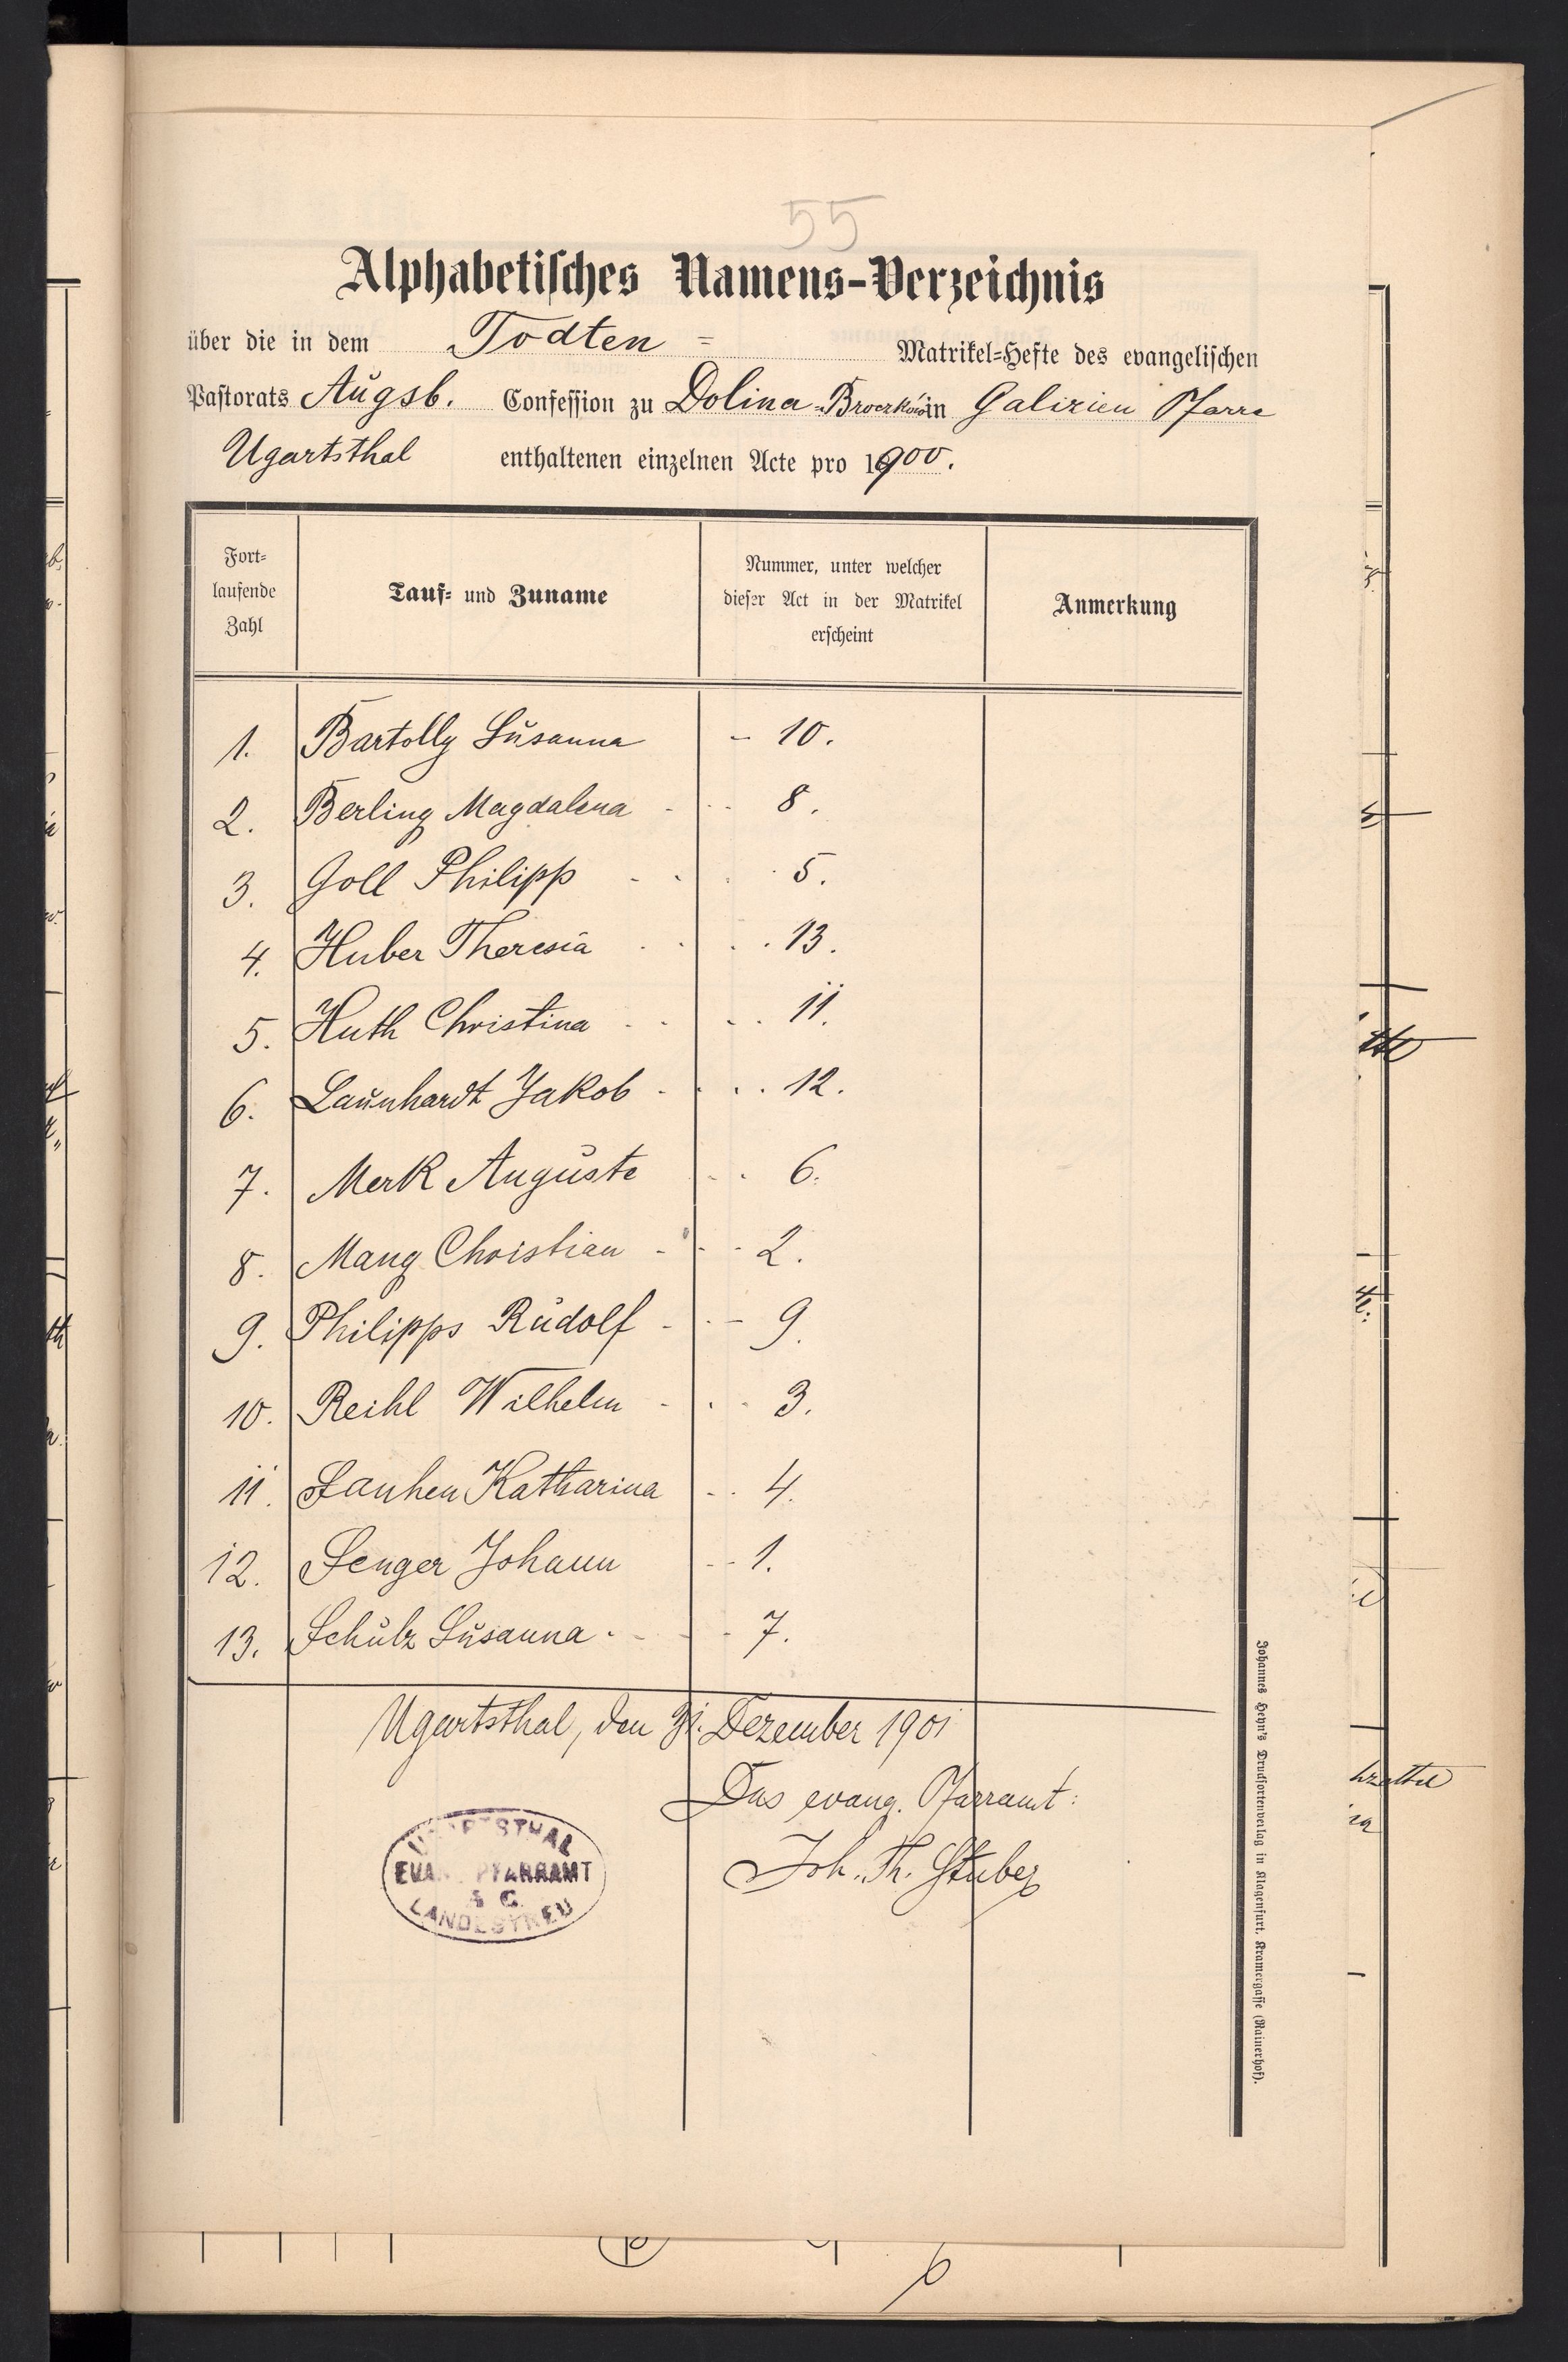 55
Alphabetisches Namens-Verzeichnis
über die in dem Todten = Matrikel-Hefte des evangelischen
Pastorats Augsb. Confession zu Dolina-Broczków in Galizien Pfarre
Ugartsthal enthaltenen einzelnen Acte pro 1900.
Fort-
laufende
Zahl
Tauf- und Zuname
Nummer, unter welcher
dieser Act in der Matrikel
erscheint
Anmerkung
1. Bartolly Susanna - 10.
2. Berling Magdalena - - - 8.
3. Goll Philipp - - - - 5.
4. Huber Theresia - - - - 13.
5. Huth Christina - - - - 11.
6. Launhardt Jakob - - - - 12.
7. Merk Auguste - - 6.
8. Mang Christian - - - 2.
9. Philipps Rudolf - - - 9.
10. Reihl Wilhelm - - - 3.
11. Sauhen Katharina - - 4.
12. Senger Johann - - 1.
13. Schulz Susanna - - - - 7.
Ugartsthal, den 31. Dezember 1901
Das evang. Pfarramt:
Joh. Th. Stuber
UGARTSTHAL
EVANG. PFARRAMT
A. C.
LANDESTREU
Johannes Heyn's Drucksortenverlag in Klagenfurt. Kramergasse (Rainerhof).